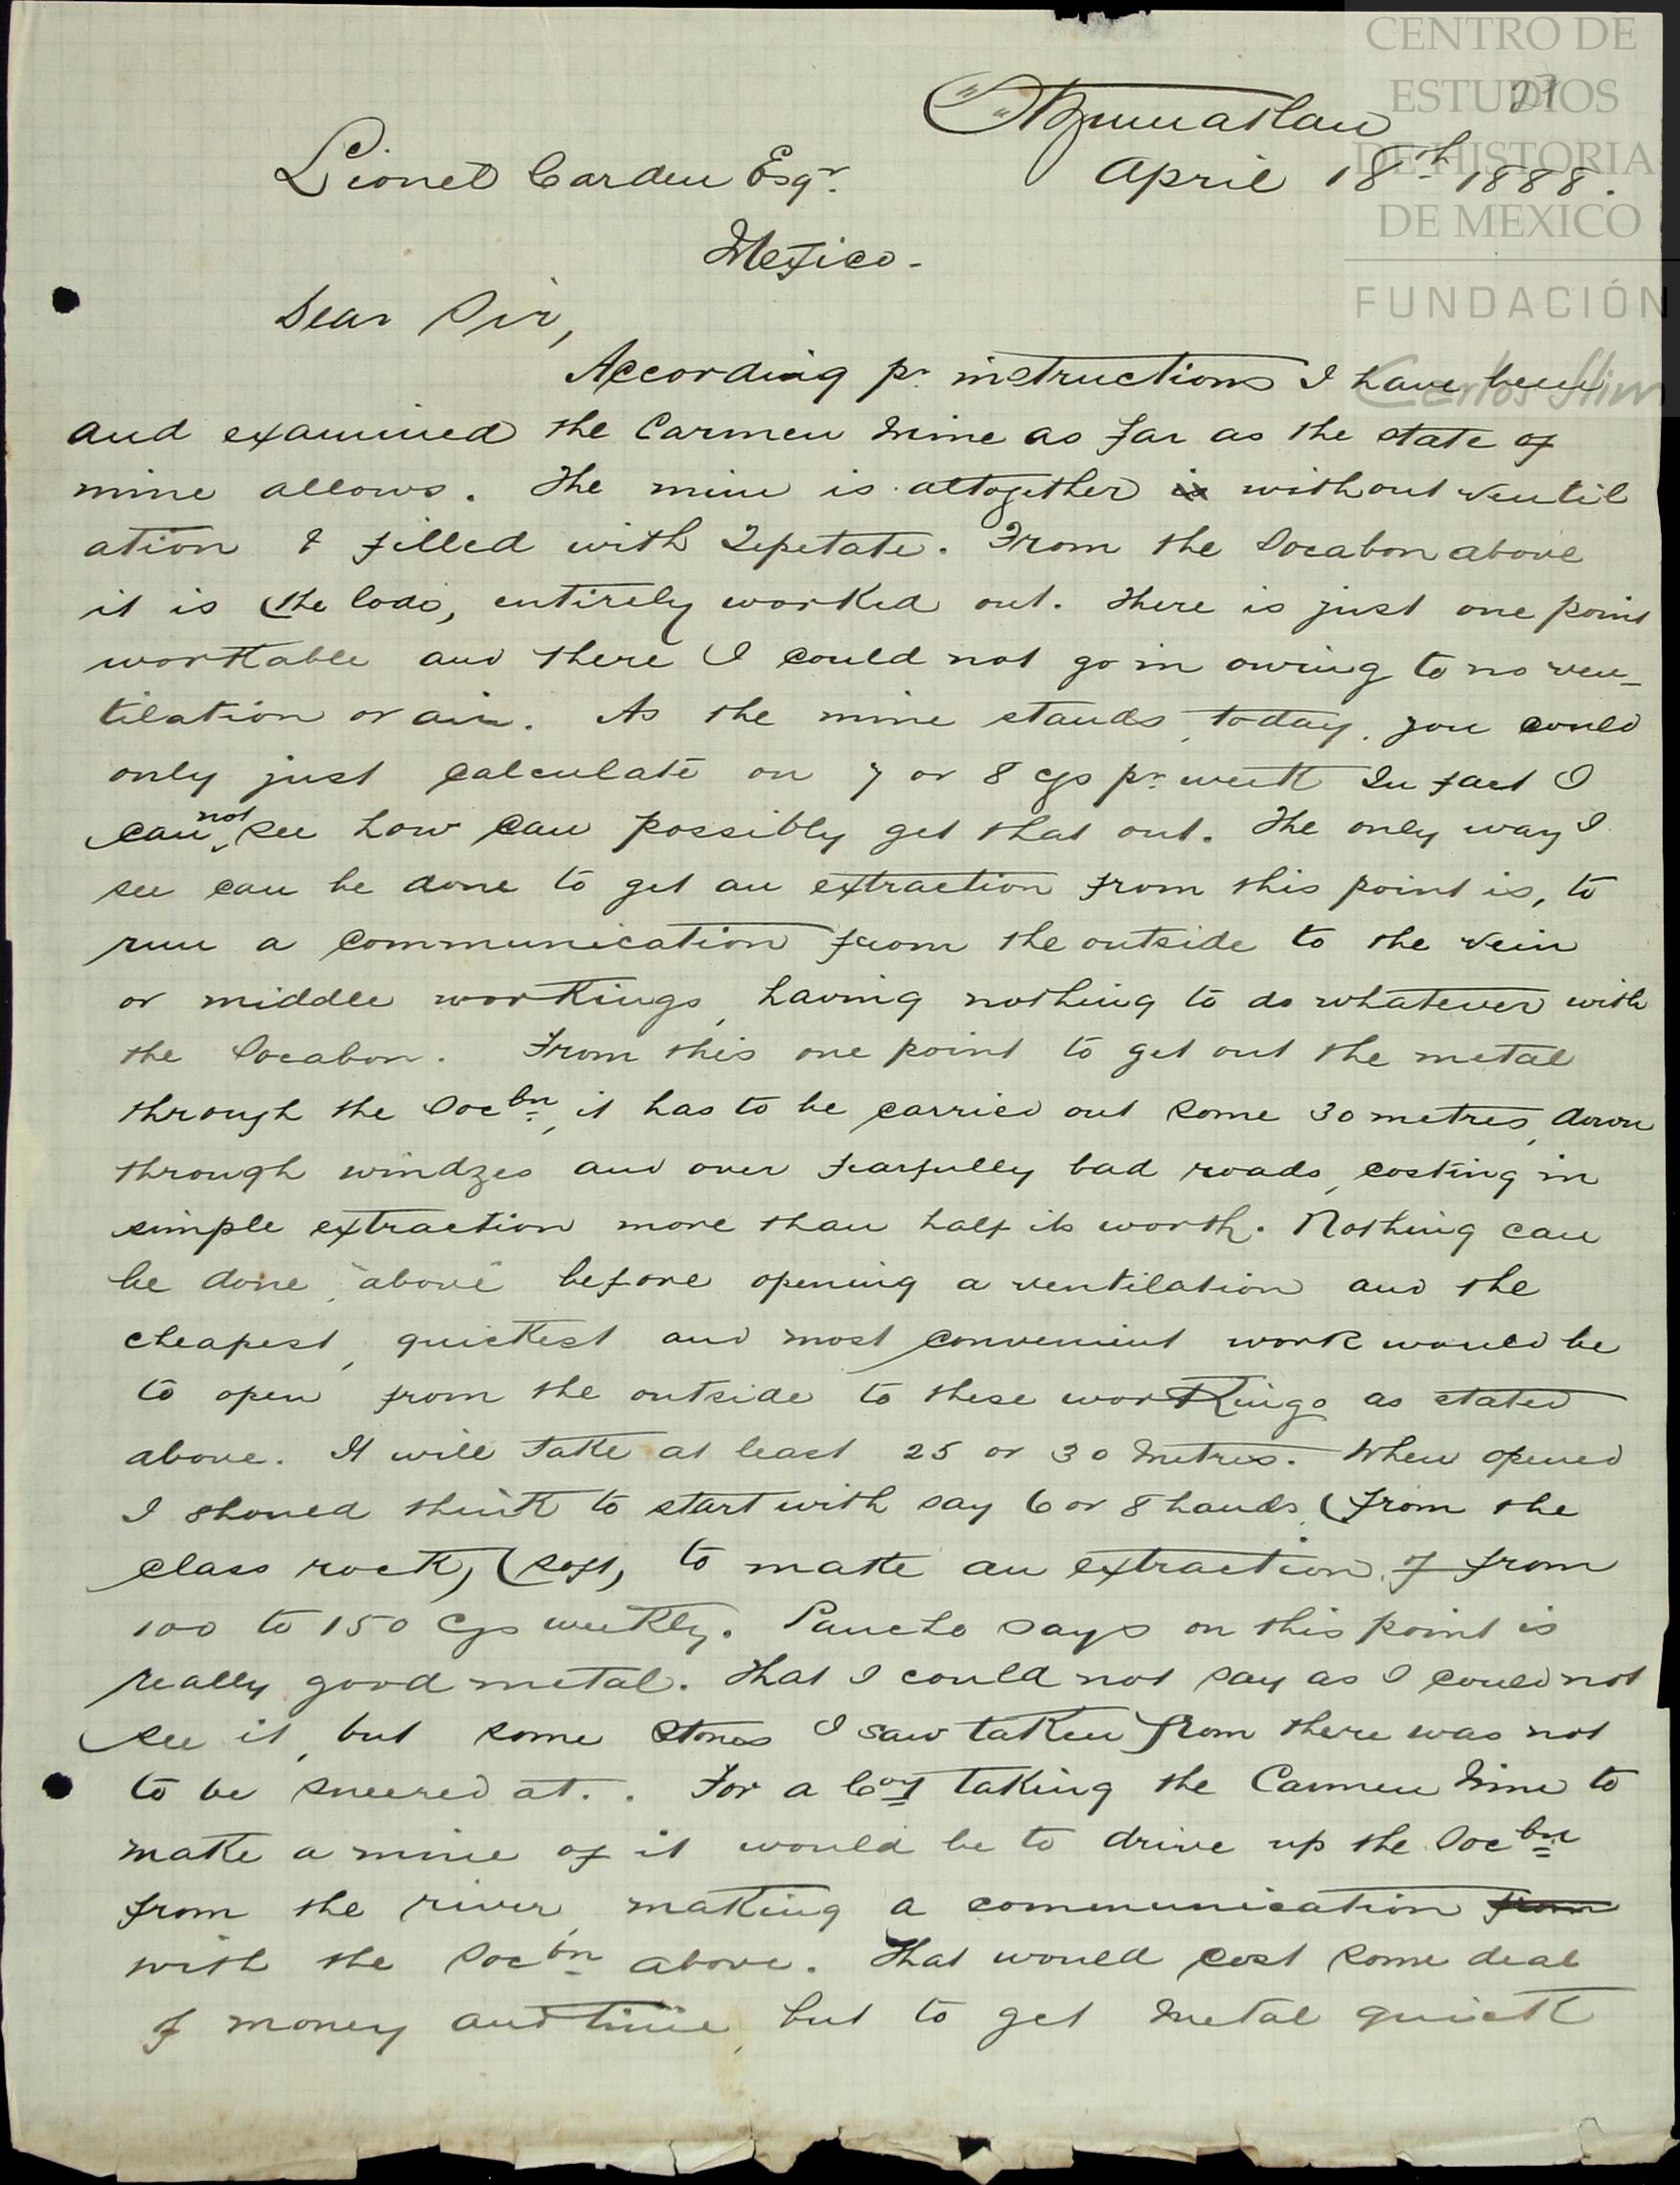 CENTRO DE
ESTUDIOS
DE HISTORIA
DE MEXICO
FUNDACIÓN
Carlos Slim
27
April 18th 1888.
Lionel Carden Esqr.
Mexico-
Dear Sir,
According pr instructions I have been
and examined the Carmen Mine as far as the state of
mine allows. The mine is altogether is without ventil
ation & filled with Tepetate. From the Socabon above
it is (the lode, entirely worked out. There is just one point
workable and there I could not go in owing to no ven-
tilation or air. As the mine stands, today, you could
only just calculate on 7 or 8 cgs pr. week In fact I
can not see how can possibly get that out. The only way I
see can be done to get an extraction from this point is, to
run a communication from the outside to the vein
or middle workings, having nothing to do whatever with
the Socabon. From this one point to get out the metal
through the Socbn, it has to be carried out some 30 metres, down
through windzes and over fearfully bad roads, costing in
simple extraction more than half its worth. Nothing can
be done, "above" before opening a ventilation and the
cheapest, quickest and most convenient work would be
to open from the outside to these workings as stated
above. It will take at least 25 or 30 Metres. When opened
I should think to start with say 6 or 8 hands, (from the
class rock) (soft, to make an extraction, of from
100 to 150 cgs weekly. Pancho says on this point is
really good metal. That I could not say as I could not
see it, but some stones I saw taken from there was not
to be sneered at. . For a Coy taking the Carmen Mine to
make a mine of it would be to drive up the Socbn
from the river, making a communication from
with the Socbn above. That would cost some deal
of money and time, but to get metal quick